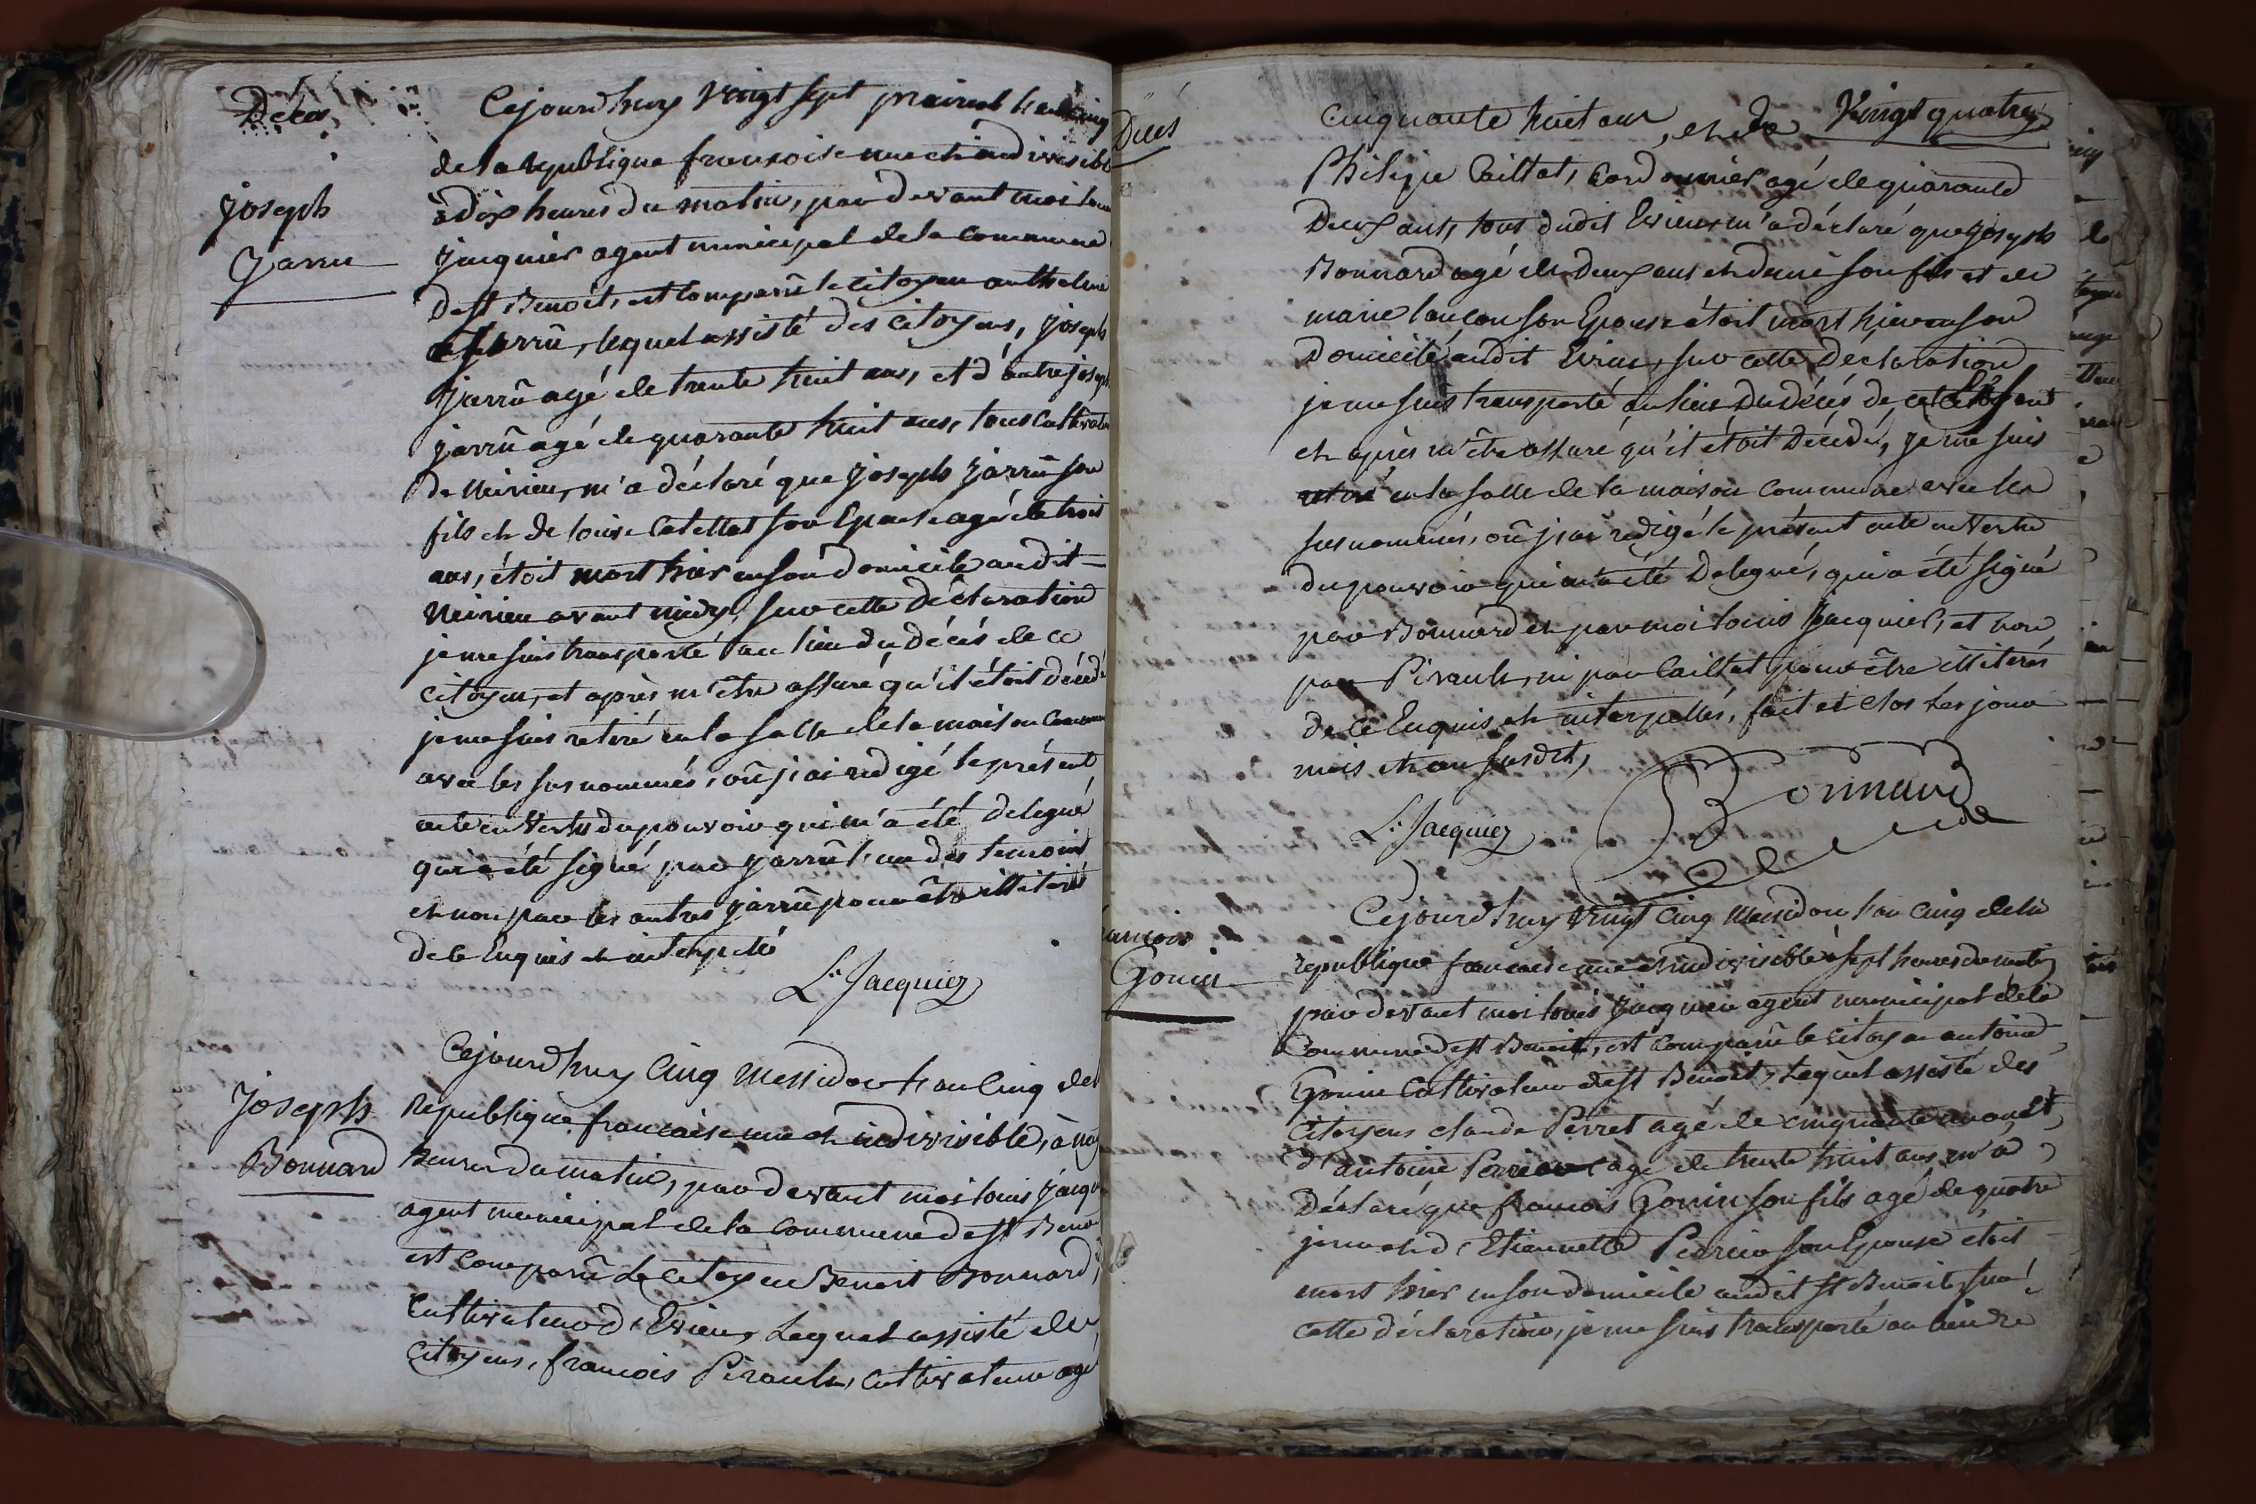 Décès
Joseph
Jarru
Cejourdhuy Vingt sept prairial l'an cinq
de la republique francoise une et indivisible
à dix heures du matin, par devant moi louis
jacquier agent municipal de la commune
de st Benoit, est comparû le citoyen anthelme
jarrû, lequel assisté des citoyens, joseph
jarrû agé de trente huit ans, et d'autre joseph
jarrû agé de quarante huit ans, tous cultivateurs
de m'a déclaré que joseph jarrû son
fils et de louise son Epouse agé de trois
ans, étoit mort hier en son domicile audit
avant midy, sur cette déclaration
je me suis transporté au lieu du décés de ce
citoyen, et après m'être assuré qu'il étoit décédé
je me suis retiré en la salle de la maison commune
avec les susnommés, où j'ai redigé le présent
acte en vertu du pouvoir qui m'a été delegué
qui a été signé par jarrû l'un des temoins
et non par les autres jarrû pour être illiterés
de ce Enquis et interpellé
Ls Jacquier
Joseph
Bonnard
Cejourdhuy Cinq Messidor l'an Cinq de la
republique francaise une et indivisible, à
heures du matin, par devant moi louis jacqu
agent municipal de la commune de st Beno
est comparû le citoyen Benoit Bonnard,
Cultivateur d'Evieu, Lequel assisté des
citoyens, francois Pirault, cultivateur agé
Décés
Vingt quatre
Cinquante huit ans, et de
Philipe Caillat, Cordonnier agé de quarante
Deux ans, tous dudit Evieu m'a déclaré que joseph
Bonnard agé de Deux ans et demi son fils et de
marie son Epouse étoit mort hier en son
Domicile audit Evieu, sur cette Déclaration
je me suis transporté au lieu du décés de cet Enfant
et après m'être assuré qu'il étoit Décédé, je me suis
retiré en la salle de la maison commune avec les
susnommés, où j'ai redigé le présent acte en vertu
du pouvoir qui m'a été Delegué, qui a été signé
par Bonnard et par moi louis Jacquier, et non
par Pirault, ni par Caillat pour être illiterés
de ce Enquis et interpellés, fait et clos les jour
mois et an susdit,
Ls Jacquier
Bonnard
francois
Gonin
Cejourdhuy vingt cinq Messidor l'an cinq de la
republique francaise une et indivisible à sept heures du matin
par devant moi louis jacquier agent municipal de la
Commune de st Benoit, est comparû le citoyen antoine
Gonin Cultivateur de st Benoit, Lequel assisté des
Citoyens claude Perret agé de cinquante
d'antoine agé de trente huit ans m'a
Déclaré que francois Gonin son fils agé de quatre
jours et d'Etiennette son Epouse étoit
mort hier en son domicile audit st Benoit, sur
cette déclaration, je me suis transporté au lieu de